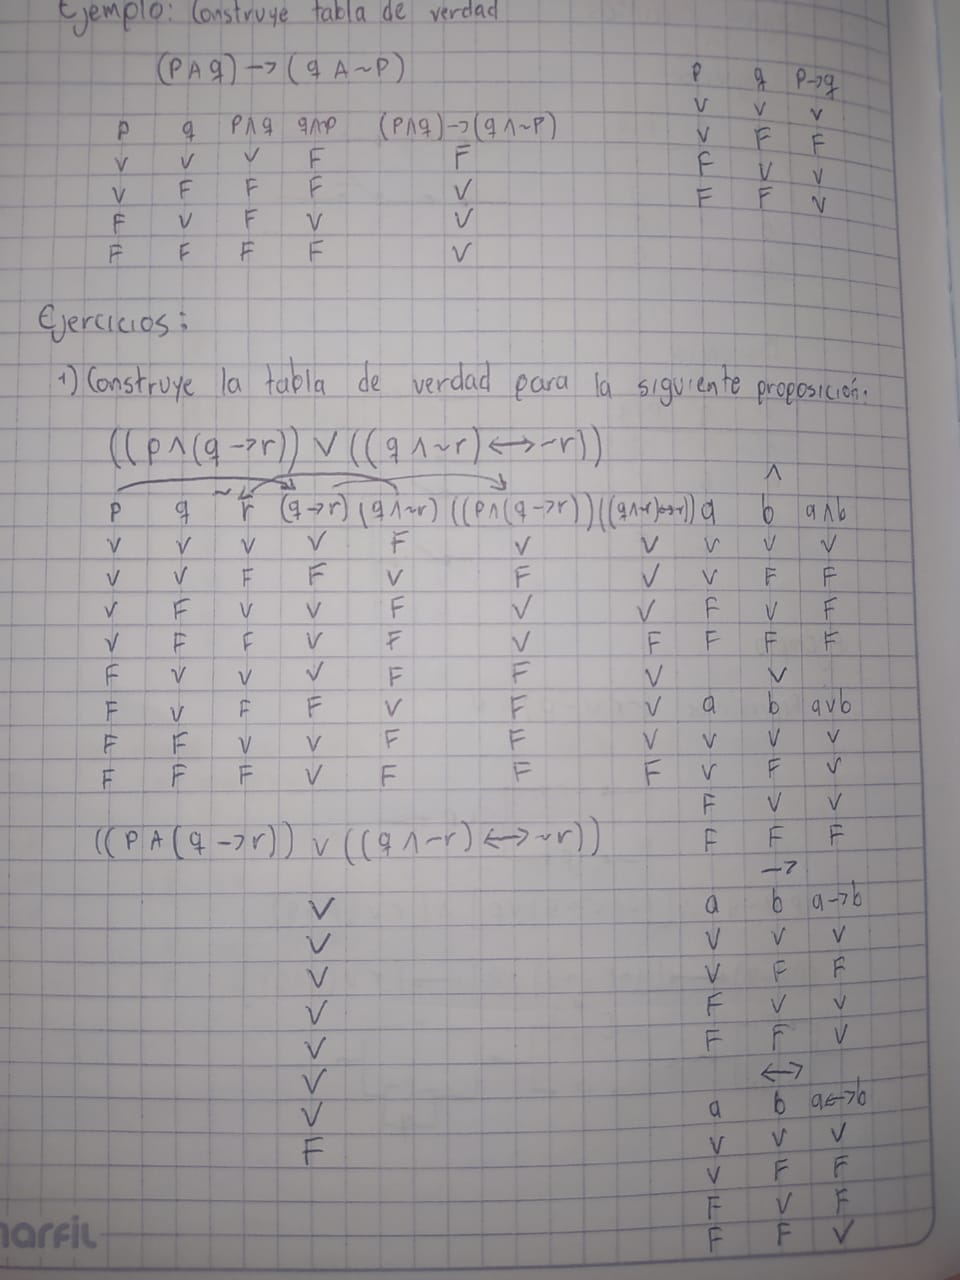 Ejemplo: Construye tabla de verdad
(P∧q)→(q∧~P)
P q P→q
V V V
V F F
F V V
F F V
P q P∧q q∧p (P∧q)→(q∧~P)
V V V F F
V F F F V
F V F V V
F F F F V
Ejercicios:
1) Construye la tabla de verdad para la siguiente proposición.
((p∧(q→r)) ∨ ((q∧~r)↔~r))
~
P q r (q→r) (q∧~r) ((p∧(q→r)) ((q∧~r)↔~r))
V V V V F V V
V V F F V F V
V F V V F V V
V F F V F V F
F V V V F F V
F V F F V F V
F F V V F F V
F F F V F F F
∧
a b a∧b
V V V
V F F
F V F
F F F
V
a b a∨b
V V V
V F V
F V V
F F F
((P∧(q→r)) ∨ ((q∧~r)↔~r))
V
V
V
V
V
V
V
F
→
a b a→b
V V V
V F F
F V V
F F V
↔
a b a↔b
V V V
V F F
F V F
F F V
marfil